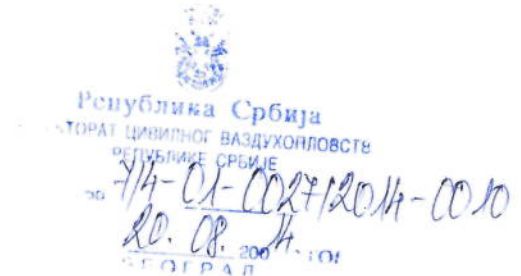 Република Србија
ТОРАТ ЦИВИЛНОГ ВАЗДУХОПЛОВСТВ
РЕПУБЛИКЕ СРБИЈЕ
7/4-01-0027/2014-0010
20. 08. 200 14. год
БЕОГРАД